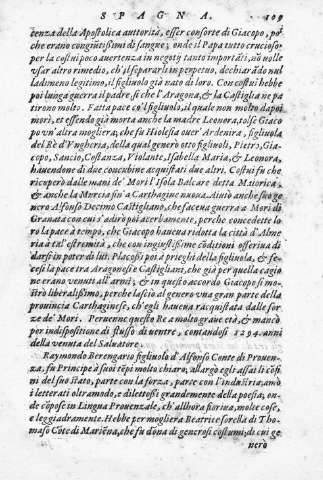 SPAGNA. 109
cenza della Apostolica auttorità, esser consorte di Giacopo, poi
che erano congiũtissimi di sangue; onde il Papa tutto crucioso,
per la costui poco auertenza in negotij tanto importãti, nõ uolle
vsar altro rimedio, ch'il separarli in perpetuo, dechiarãdo nul
la dimeno legitimo, il figliuolo già nato di loro. Con costui hebbe
poi lunga guerra il padre, si che l'Aragona, & la Castiglia ne pa
tirono molto. Fatta pace cõ'l figliuolo, il quale non molto dapoi
morì, et essendo già morta anche la madre Leonora, tolse Giaco
po vn' altra mogliera; che fu Hiolesia ouer Ardenira, figliuola
del Rè d'Vngheria, della qual generò otto figliuoli, Pietro, Gia-
copo, Sancio, Costanza, Violante, Isabella Maria, & Leonora,
hauendone di due concubine acquistati due altri. Costui fu che
ricuperò dalle mani de' Mori l'Isola Balcare detta Maiorica,
& anche la Murcia sio' a Carthagine nuoua. Aiutò anche suo ge
nero Alfonso Decimo Castigliano, che faceua guerra a' Mori di
Granata con cui s'adirò poi acerbamente, perche concedette lo
ro la pace à tempo, che Giacopo haueua ridotta la città d'Alme
ria à tal' estremità, che con ingiustissime cõditioni offeriua di
darsi in poter di lui. Placossi poi à prieghi della figliuola, & fe-
cesi la pace trà Aragonesi e Castigliani, che già per quella cagio
ne erano venuti all' armi; & in questo accordo Giacopo si mo-
strò liberalissimo, perche lasciò al genero vna gran parte della
prouincia Carthaginese, ch'egli haueua racquistata dalle for
ze de' Mori. Peruenne questo Re a molto graue età, & mancò
per indispositione di flusso di uentre, contandosi 1294. anni
della venuta del Saluatore.
Raymondo Berengario figliuolo d'Alfonso Conte di Prouen-
za, fu Principe à suoi tẽpi molto chiaro; allargò egli assai li cõfi
ni del suo stato, parte con la forza, parte con l'industria, amò
i letterati oltramodo, e dilettossi grandemente della poesia; on-
de cõpose in Lingua Prouenzale, ch'allhora fioriua, molte cose,
e leggiadramente. Hebbe per mogliera Beatrice sorella di Tho-
maso Cõte di Mariẽna, che fu dona di generosi costumi, di cui ge
nerò